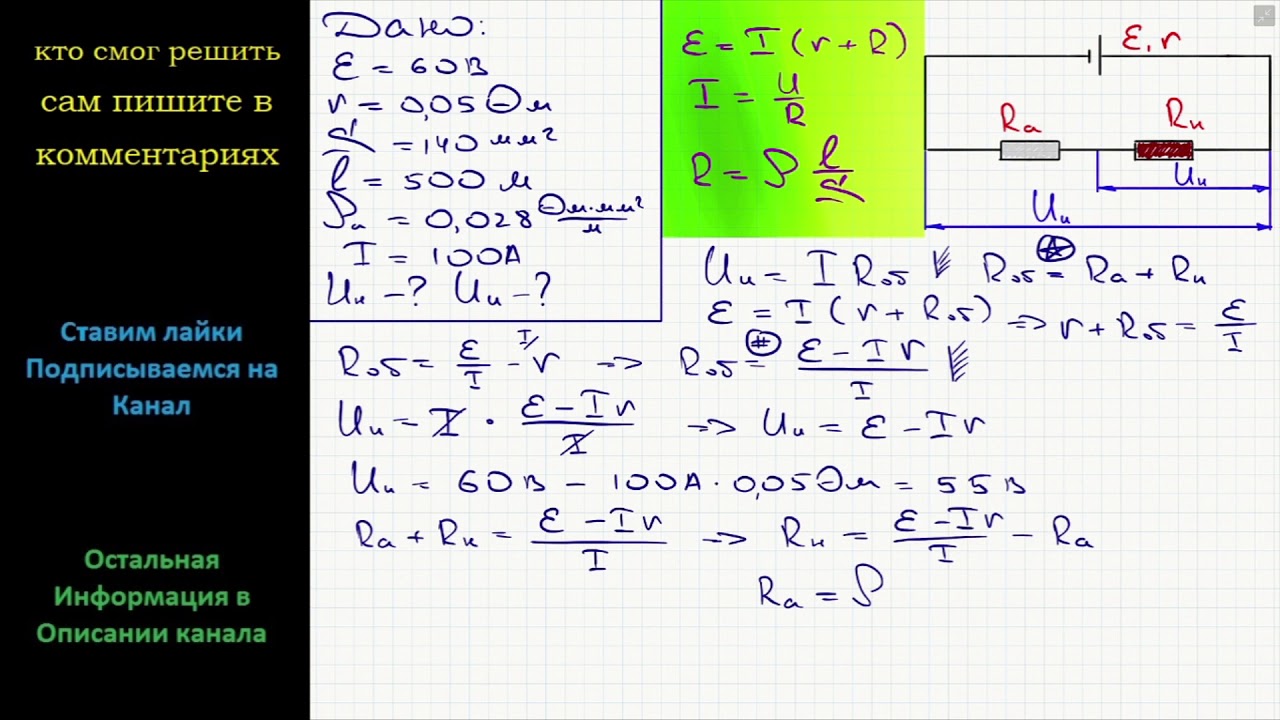 кто смог решить
сам пишите в
комментариях
Ставим лайки
Подписываемся на
Канал
Остальная
Информация в
Описании канала
Дано:
ε = 60В
r = 0,05 Ом
S = 140 мм²
l = 500 м
ρа = 0,028 Ом·мм²/м
I = 100А
Uи -? Uн -?
ε = I (r + R)
I = U/R
R = ρ l/S
ε, r
Rа Rн
Uн
Uи
Uи = I Rоб Rоб = Rа + Rн
ε = I (r + Rоб) => r + Rоб = ε/I
Rоб = ε/I - r => Rоб = (ε - I r)/I
Uи = I · (ε - I r)/I => Uи = ε - I r
Uи = 60В - 100А · 0,05 Ом = 55В
Rа + Rн = (ε - I r)/I => Rн = (ε - I r)/I - Rа
Rа = ρ